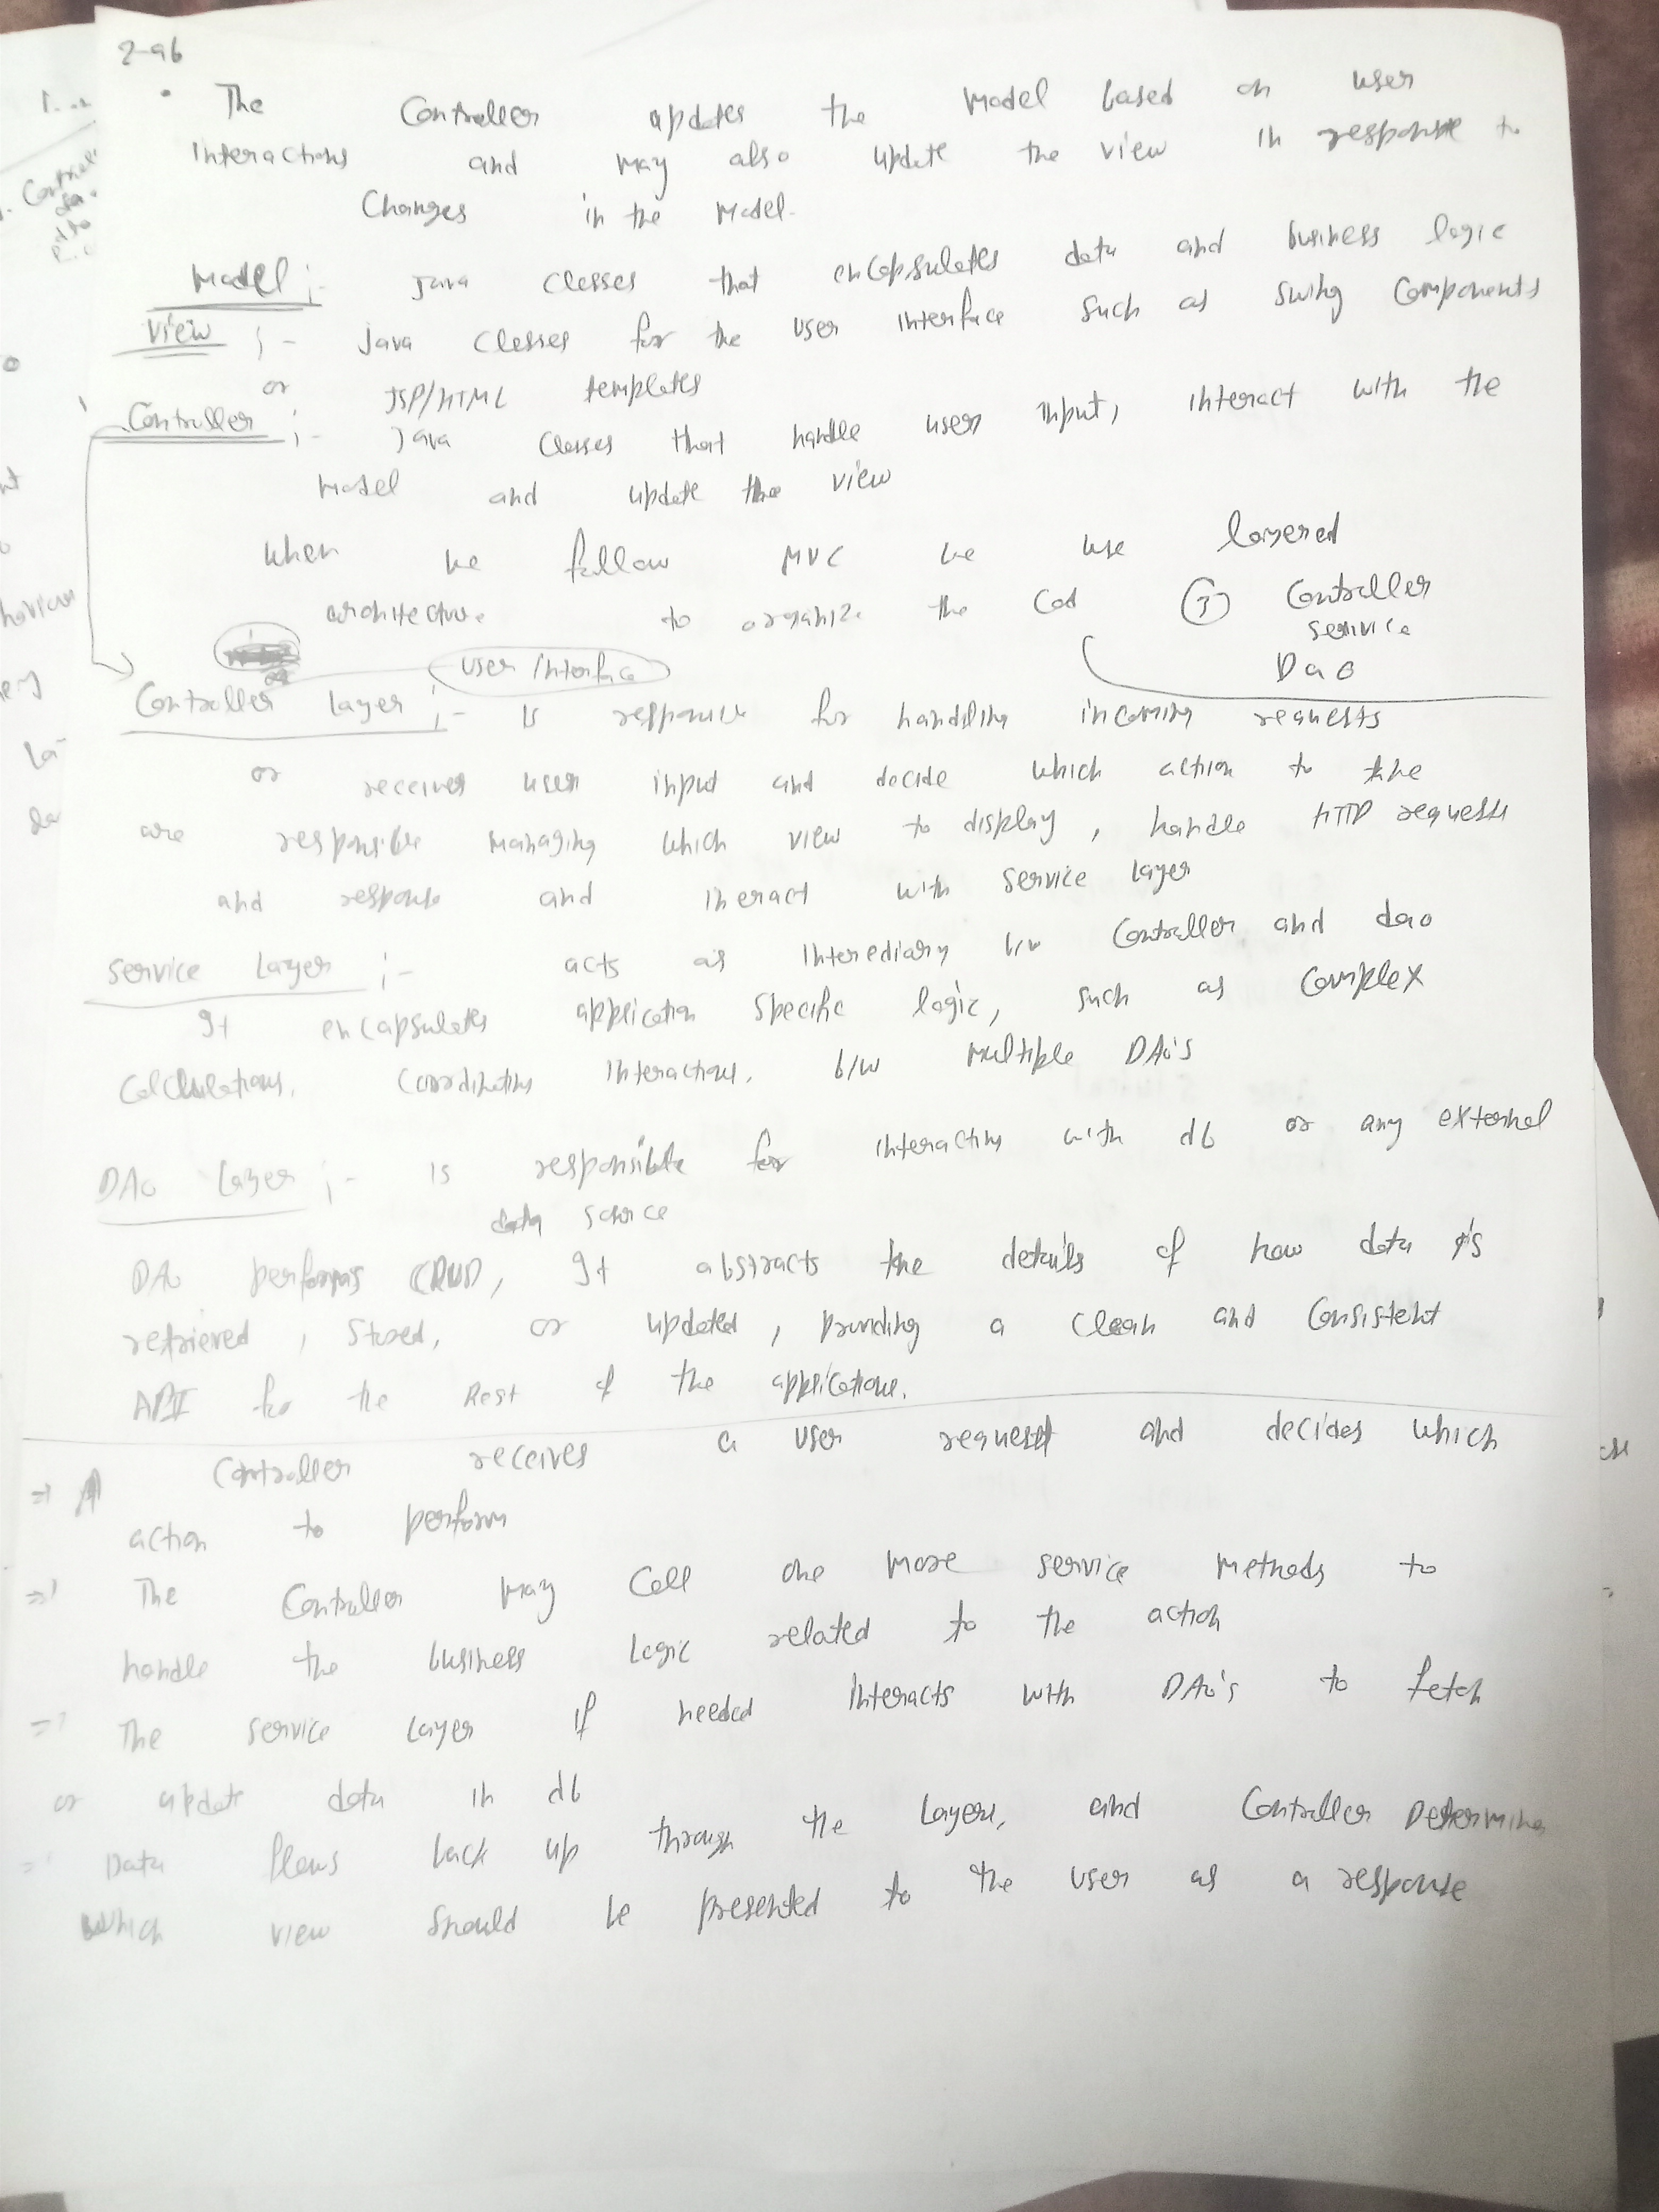 2-96
• The Controller updates the Model based on user
interactions and may also update the view in response to
Changes in the Model.
Model ;- java classes that encapsulates data and business logic
View ;- java classes for the user interface such as swing Components
or JSP/HTML templates
Controller ;- Java classes that handle user input, interact with the
Model and update the view
when we follow MVC we use layered
architecture to organize the Cod ③ Controller
service
Dao
user interface
Controller Layer ;- is response for handling incoming requests
or receives user input and decide which action to take
are responsible managing which view to display, handle HTTP requests
and response and interact with service layer
Service Layer ;- acts as Interediary b/w Controller and dao
It encapsulates application specific logic, such as Complex
Calculations, Coordinating interactions, b/w Multiple DAO's
DAO Layer ;- is responsible for interacting with db or any external
data source
DAO performs CRUD, It abstracts the details of how data is
retrieved, stored, or updated, providing a clean and Consistent
API for the Rest of the applications.
=> A Controller receives a user request and decides which
action to perform
=> The Controller may Call one more service Methods to
handle the business logic related to the action
=> The service layer if needed interacts with DAO's to fetch
or update data in db
=> Data flows back up through the Layers, and Controller Determines
which view should be presented to the user as a response